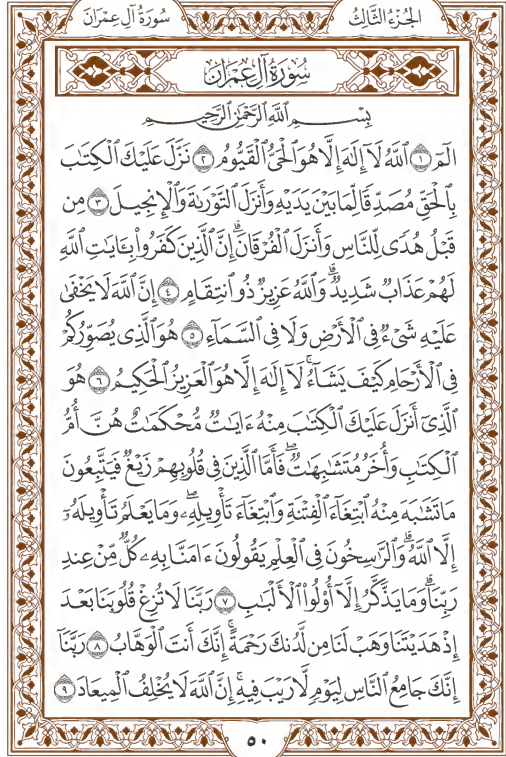 سُورَةُ آلِ عِمْرَانَ الجُزْءُ الثَّالِثُ
سُورَةُ آلِ عِمْرَانَ
بِسْمِ ٱللَّهِ ٱلرَّحْمَٰنِ ٱلرَّحِيمِ
الٓمٓ ١ ٱللَّهُ لَآ إِلَٰهَ إِلَّا هُوَ ٱلْحَىُّ ٱلْقَيُّومُ ٢ نَزَّلَ عَلَيْكَ ٱلْكِتَٰبَ
بِٱلْحَقِّ مُصَدِّقًا لِّمَا بَيْنَ يَدَيْهِ وَأَنزَلَ ٱلتَّوْرَىٰةَ وَٱلْإِنجِيلَ ٣ مِن
قَبْلُ هُدًى لِّلنَّاسِ وَأَنزَلَ ٱلْفُرْقَانَۗ إِنَّ ٱلَّذِينَ كَفَرُوا۟ بِـَٔايَٰتِ ٱللَّهِ
لَهُمْ عَذَابٌ شَدِيدٌۗ وَٱللَّهُ عَزِيزٌ ذُو ٱنتِقَامٍ ٤ إِنَّ ٱللَّهَ لَا يَخْفَىٰ
عَلَيْهِ شَىْءٌ فِى ٱلْأَرْضِ وَلَا فِى ٱلسَّمَآءِ ٥ هُوَ ٱلَّذِى يُصَوِّرُكُمْ
فِى ٱلْأَرْحَامِ كَيْفَ يَشَآءُۚ لَآ إِلَٰهَ إِلَّا هُوَ ٱلْعَزِيزُ ٱلْحَكِيمُ ٦ هُوَ
ٱلَّذِىٓ أَنزَلَ عَلَيْكَ ٱلْكِتَٰبَ مِنْهُ ءَايَٰتٌ مُّحْكَمَٰتٌ هُنَّ أُمُّ
ٱلْكِتَٰبِ وَأُخَرُ مُتَشَٰبِهَٰتٌۖ فَأَمَّا ٱلَّذِينَ فِى قُلُوبِهِمْ زَيْغٌ فَيَتَّبِعُونَ
مَا تَشَٰبَهَ مِنْهُ ٱبْتِغَآءَ ٱلْفِتْنَةِ وَٱبْتِغَآءَ تَأْوِيلِهِۦۖ وَمَا يَعْلَمُ تَأْوِيلَهُۥٓ
إِلَّا ٱللَّهُۗ وَٱلرَّٰسِخُونَ فِى ٱلْعِلْمِ يَقُولُونَ ءَامَنَّا بِهِۦ كُلٌّ مِّنْ عِندِ
رَبِّنَاۗ وَمَا يَذَّكَّرُ إِلَّآ أُو۟لُوا۟ ٱلْأَلْبَٰبِ ٧ رَبَّنَا لَا تُزِغْ قُلُوبَنَا بَعْدَ
إِذْ هَدَيْتَنَا وَهَبْ لَنَا مِن لَّدُنكَ رَحْمَةًۚ إِنَّكَ أَنتَ ٱلْوَهَّابُ ٨ رَبَّنَآ
إِنَّكَ جَامِعُ ٱلنَّاسِ لِيَوْمٍ لَّا رَيْبَ فِيهِۚ إِنَّ ٱللَّهَ لَا يُخْلِفُ ٱلْمِيعَادَ ٩
٥٠